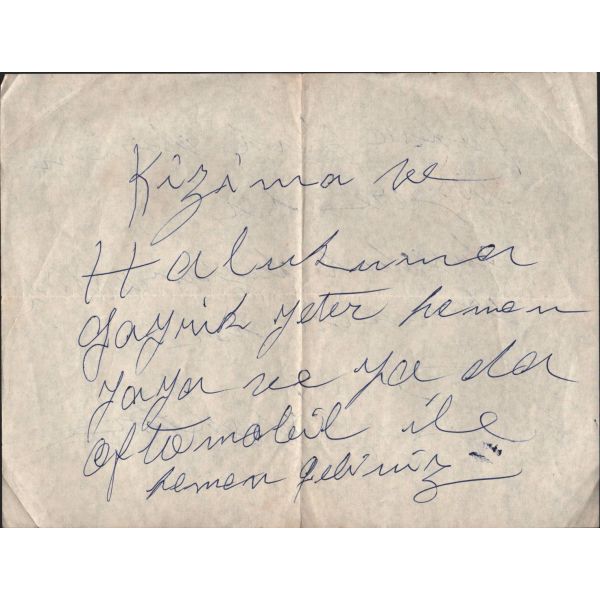 Kızıma ve
Halukuma
gayrık yeter hemen
yaya ve ya da
oftomobil ile
hemen geliniz